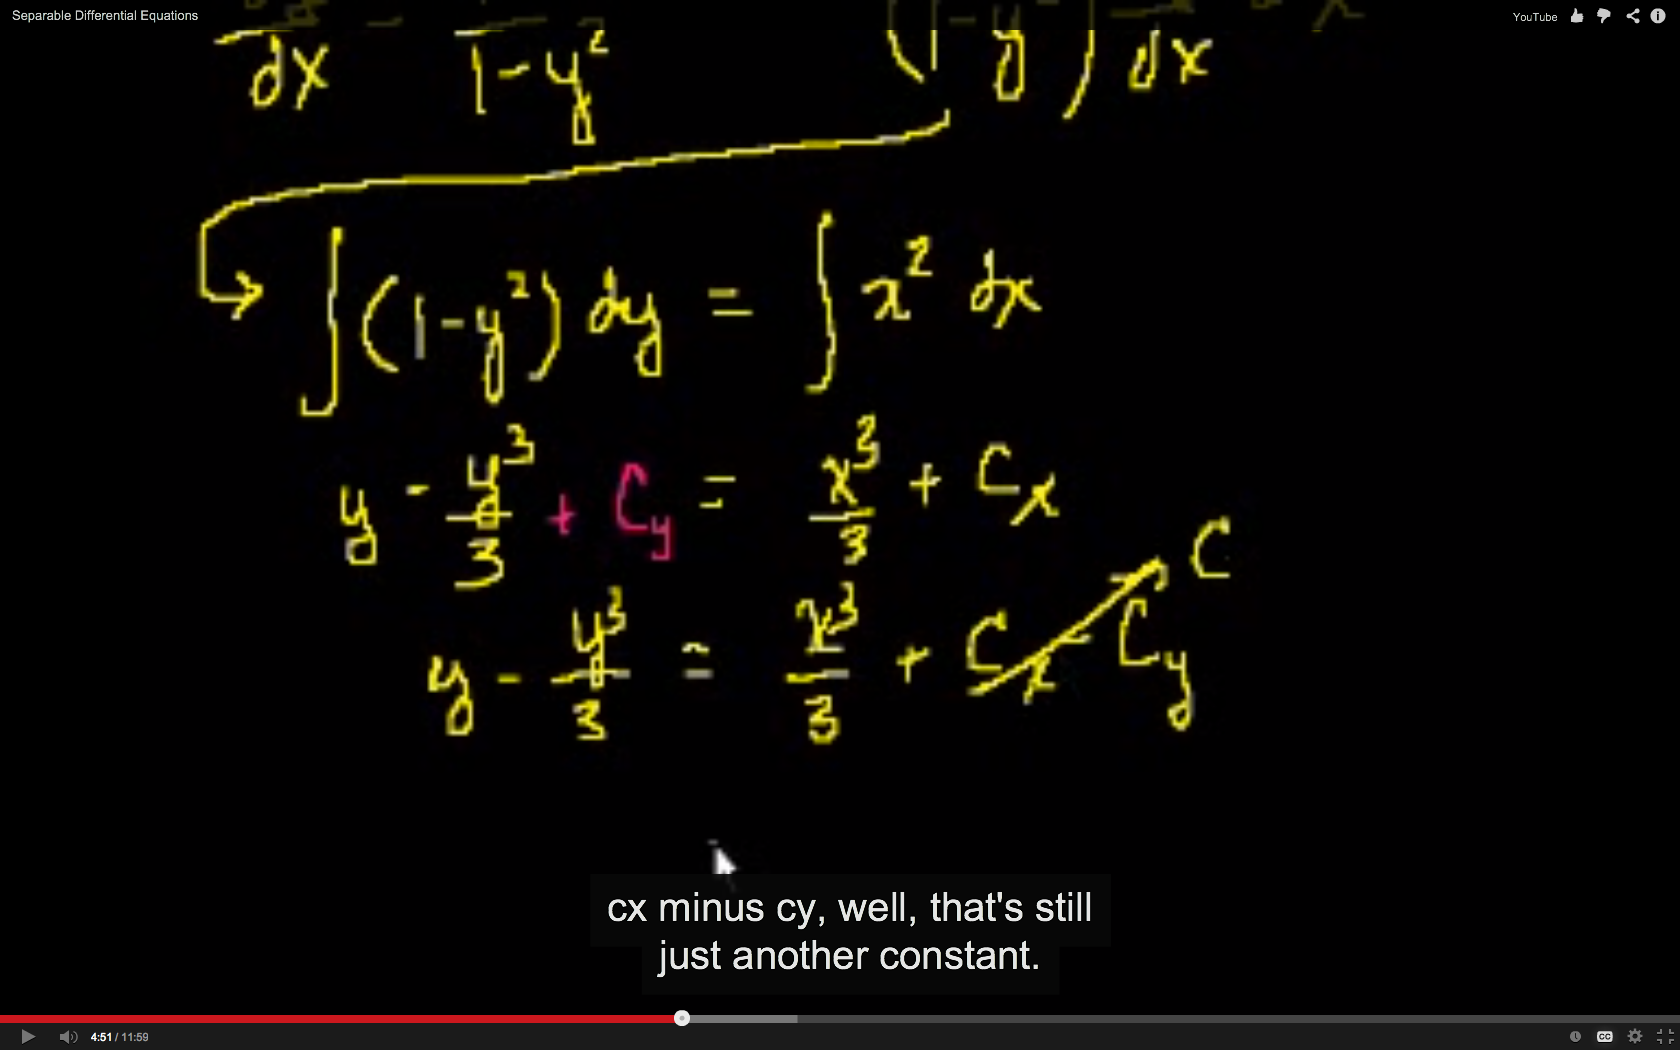 Separable Differential Equations
YouTube
dx 1-y² (1-y²) dx
∫(1-y²) dy = ∫ x² dx
y - y³/3 + Cy = x³/3 + Cx
C
y - y³/3 = x³/3 + Cx - Cy
cx minus cy, well, that's still
just another constant.
4:51 / 11:59
CC